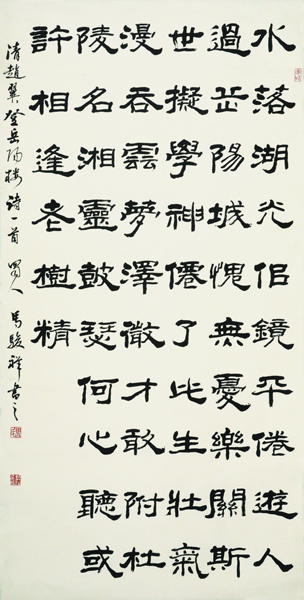 水落湖光佀鏡平倦遊人
過岳陽城愧無憂樂關斯
世擬學神僊了此生壯氣
漫吞雲夢澤微才敢附杜
陵名湘靈鼓瑟何心聽或
許相逢老樹精
清趙翼登岳陽樓詩一首 蜀人馬駿祥書之